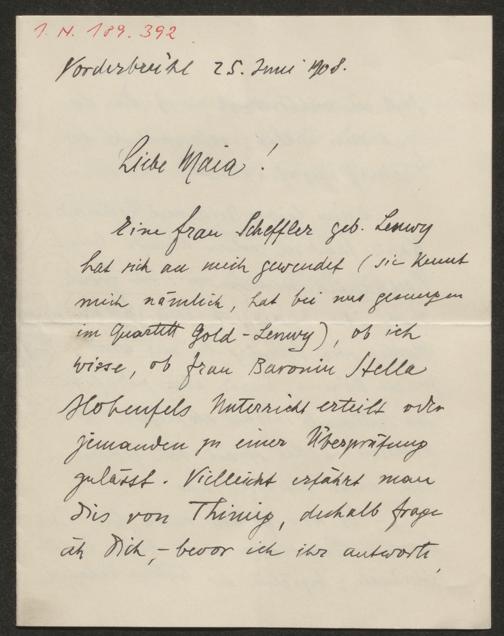 I. N. 189.392
Vorderbrühl 25. Juni 1908.
Liebe Maia!
Eine Frau Scheffler geb. Lenwy
hat sich an mich gewendet (sie kennt
mich nämlich, hat bei uns gesungen
im Quartett Gold-Lenwy), ob ich
wisse, ob Frau Baronin Stella
Hohenfels Unterricht erteilt oder
jemanden zu einer Überprüfung
zulässt. Vielleicht erfährt man
dies von Thimig, deshalb frage
ich Dich, – bevor ich ihr antworte,